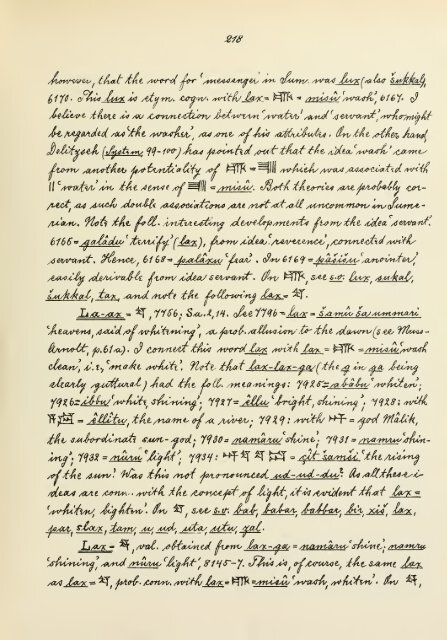 218
however, that the word for 'messenger' in Sum. was lux (also šukkal),
6170. This lux is etym. cogn. with lax = = misû 'wash', 6167. I
believe there is a connection between 'water' and 'servant', who might
be regarded as 'the washer', as one of his attributes. On the other hand,
Delitzsch (System, 99-100) has pointed out that the idea 'wash' came
from another potentiality of = which was associated with
'water' in the sense of = misû. Both theories are probably cor-
rect, as such double associations are not at all uncommon in Sume-
rian. Note the foll. interesting developments from the idea 'servant'.
6166 = galâdu 'terrify' (lax), from idea 'reverence', connected with
servant. Hence, 6168 = palâxu 'fear'. In 6169 = pâšišu 'anointer',
easily derivable from idea servant. On , see s.v. lux, sukal,
šukkal, tax, and note the following lax = .
La-ax = , 7756, Sa. 2, 14. See 7796 = lax = šamû ša ummari
'heavens, said of whitening', a prob. allusion to the dawn (see Muss-
Arnolt, p. 61 a). I connect this word lax with lax = = misû 'wash
clean', i.e., 'make white'. Note that lax-lax-ga (the g in ga being
clearly guttural) had the foll. meanings: 7925 = abâbu 'whiten';
7926 = ibbu 'white, shining'; 7927 = êllu 'bright, shining'; 7928: with
= êllitu, the name of a river; 7929: with = god Mâlik,
the subordinate sun-god; 7930 = namâru 'shine'; 7931 = namru 'shin-
ing'; 7932 = nûru 'light'; 7934: = çît šamši 'the rising
of the sun'. Was this not pronounced ud-ud-du? As all these i-
deas are conn. with the concept of light, it is evident that lax =
'whiten, brighten'. On , see s.v. bab, babar, babbar, bir, xiš, lax,
par, s.lax, tam, u, ud, uta, utu, zal.
Lax = , val. obtained from lax-ga = namâru 'shine', namru
'shining', and nûru 'light', 8145-7. This is, of course, the same lax
as lax = , prob. conn. with lax = = misû 'wash, whiten'. On ,